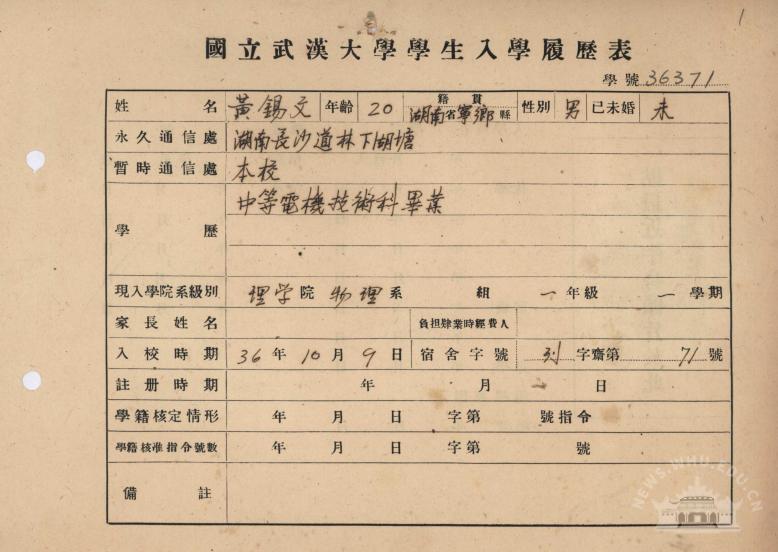 1
國立武漢大學學生入學履歷表
學號 36371
姓名 黃錫文 年齡 20 籍貫 湖南省寧鄉縣 性別 男 已未婚 未
永久通信處 湖南長沙道林下湖塘
暫時通信處 本校
學歷 中等電機技術科畢業
現入學院系級別 理学院 物理系 組 一年級 一學期
家長姓名 負担肄業時經費人
入校時期 36年10月9日 宿舍字號 字齋第 71號
註册時期 年 月 日
學籍核定情形 年 月 日 字第 號指令
學籍核准指令號數 年 月 日 字第 號
備註
NEWS.WHU.EDU.CN